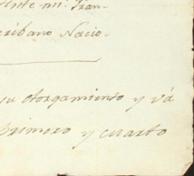 ente mi: Fran-
cribano Nacio-
su otorgamiento y vá
primero y cuarto